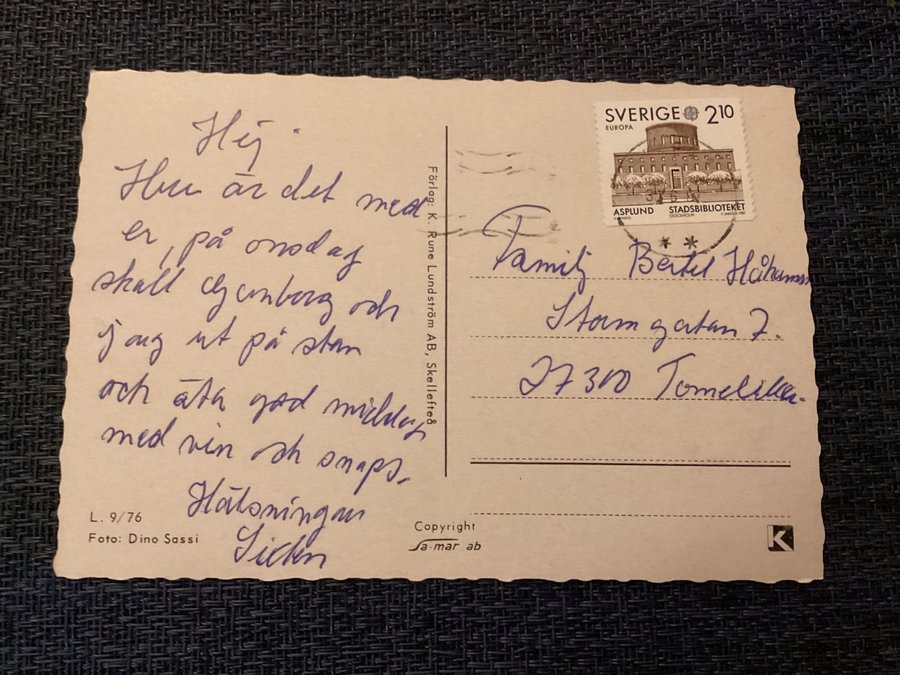 Hej.
Hur är det med
er, på onsdag
skall och
jag ut på stan
och äta god middag
med vin och snaps.
Hälsningar
Förlag: K. Rune Lundström AB, Skellefteå
SVERIGE 2 10
EUROPA
ASPLUND STADSBIBLIOTEKET
STOCKHOLM
Familj Bertil
Stormgatan 7.
27300 Tomelilla.
L. 9/76
Foto: Dino Sassi
Copyright
Sa-mar ab
K